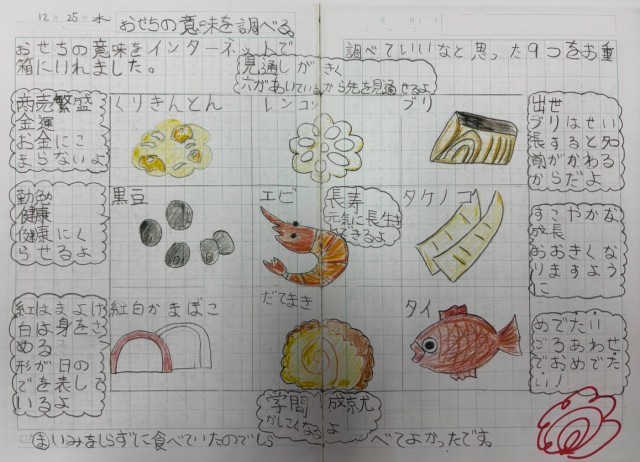 12 25 水
おせちの意味を調べる
おせちの意味をインターネットで調べていいなと思った9つをお重
箱にいれました。
見通しがきく
穴があいているから先を見通せるよ
商売繁盛
金運
お金にこ
まらないよ
くりきんとん
レンコン
ブリ
出世
ブリはせい
長すると名
前がかわる
からだよ
勤勉
健康
健康にく
らせるよ
黒豆
エビ
長寿
元気に長生き
できるよ
タケノコ
すこやかな
成長
おおきくな
りますよう
に
紅はまよけ
白は身をき
める
形が日の
でを表して
いるよ
紅白かまぼこ
だてまき
タイ
めでたい
ごろあわせ
でおめでた
い!
学問成就
かしこくなるよ
ま いみをしらずに食べていたのでしらべてよかったです。